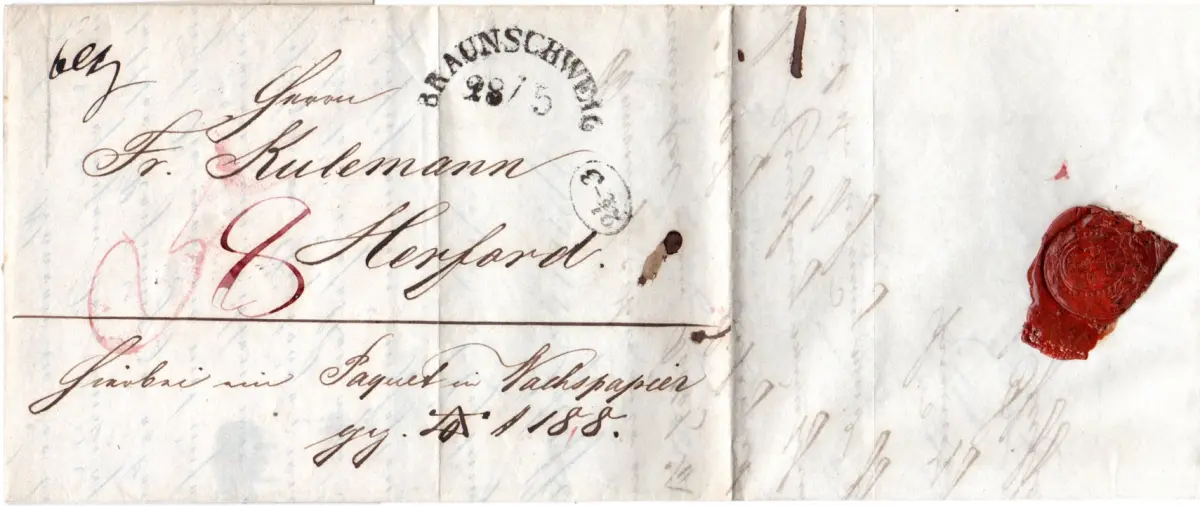 BRAUNSCHWEIG
28/5
Herrn
Fr. Kulemann
Herford.
8
Hierbei ein Paquet in Wachspapier
gg. 1188.